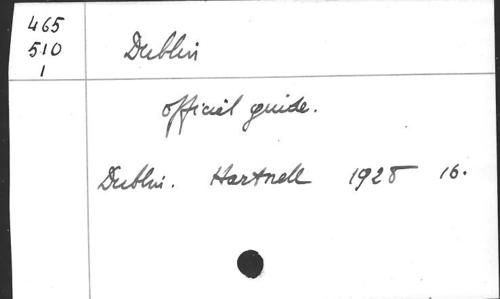 465
510
1
Dublin
official guide.
Dublin. Hartnell 1928 16.